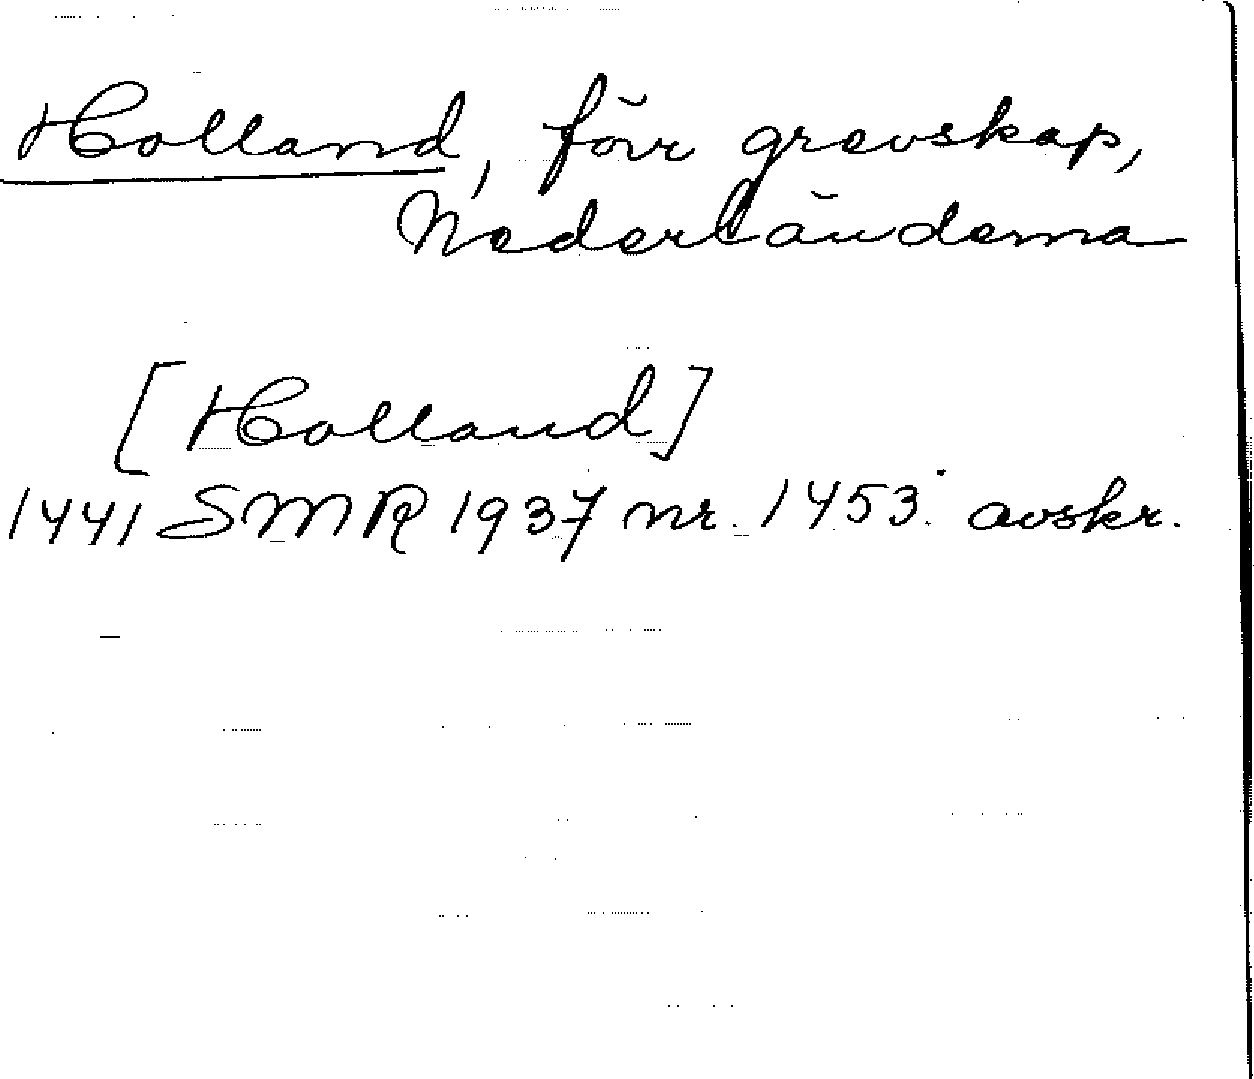 Holland, förr grevskap,
Nederländerna
[Holland]
1441 SMR 1937 nr. 1453. avskr.